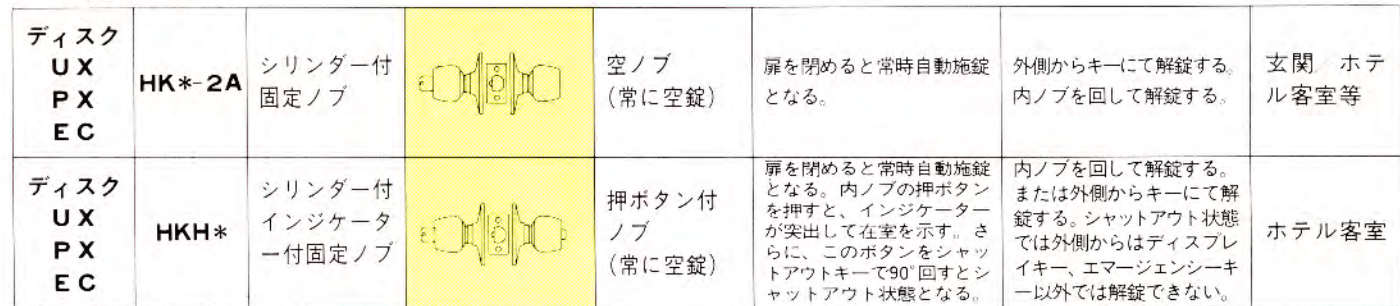 ディスク
UX
PX
EC
HK*-2A
シリンダー付
固定ノブ
空ノブ
(常に空錠)
扉を閉めると常時自動施錠
となる。
外側からキーにて解錠する。
内ノブを回して解錠する。
玄関 ホテ
ル客室等
ディスク
UX
PX
EC
HKH*
シリンダー付
インジケータ
ー付固定ノブ
押ボタン付
ノブ
(常に空錠)
扉を閉めると常時自動施錠
となる。内ノブの押ボタン
を押すと、インジケーター
が突出して在室を示す。さ
らに、このボタンをシャッ
トアウトキーで90°回すとシ
ャットアウト状態となる。
内ノブを回して解錠する。
または外側からキーにて解
錠する。シャットアウト状態
では外側からはディスプレ
イキー、エマージェンシーキ
ー以外では解錠できない。
ホテル客室